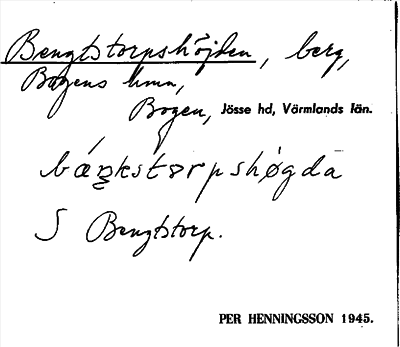 Bengtstorpshöjden, berg,
Bogens hmn,
Bogen, Jösse hd, Värmlands län.
S Bengtstorp.
PER HENNINGSSON 1945.